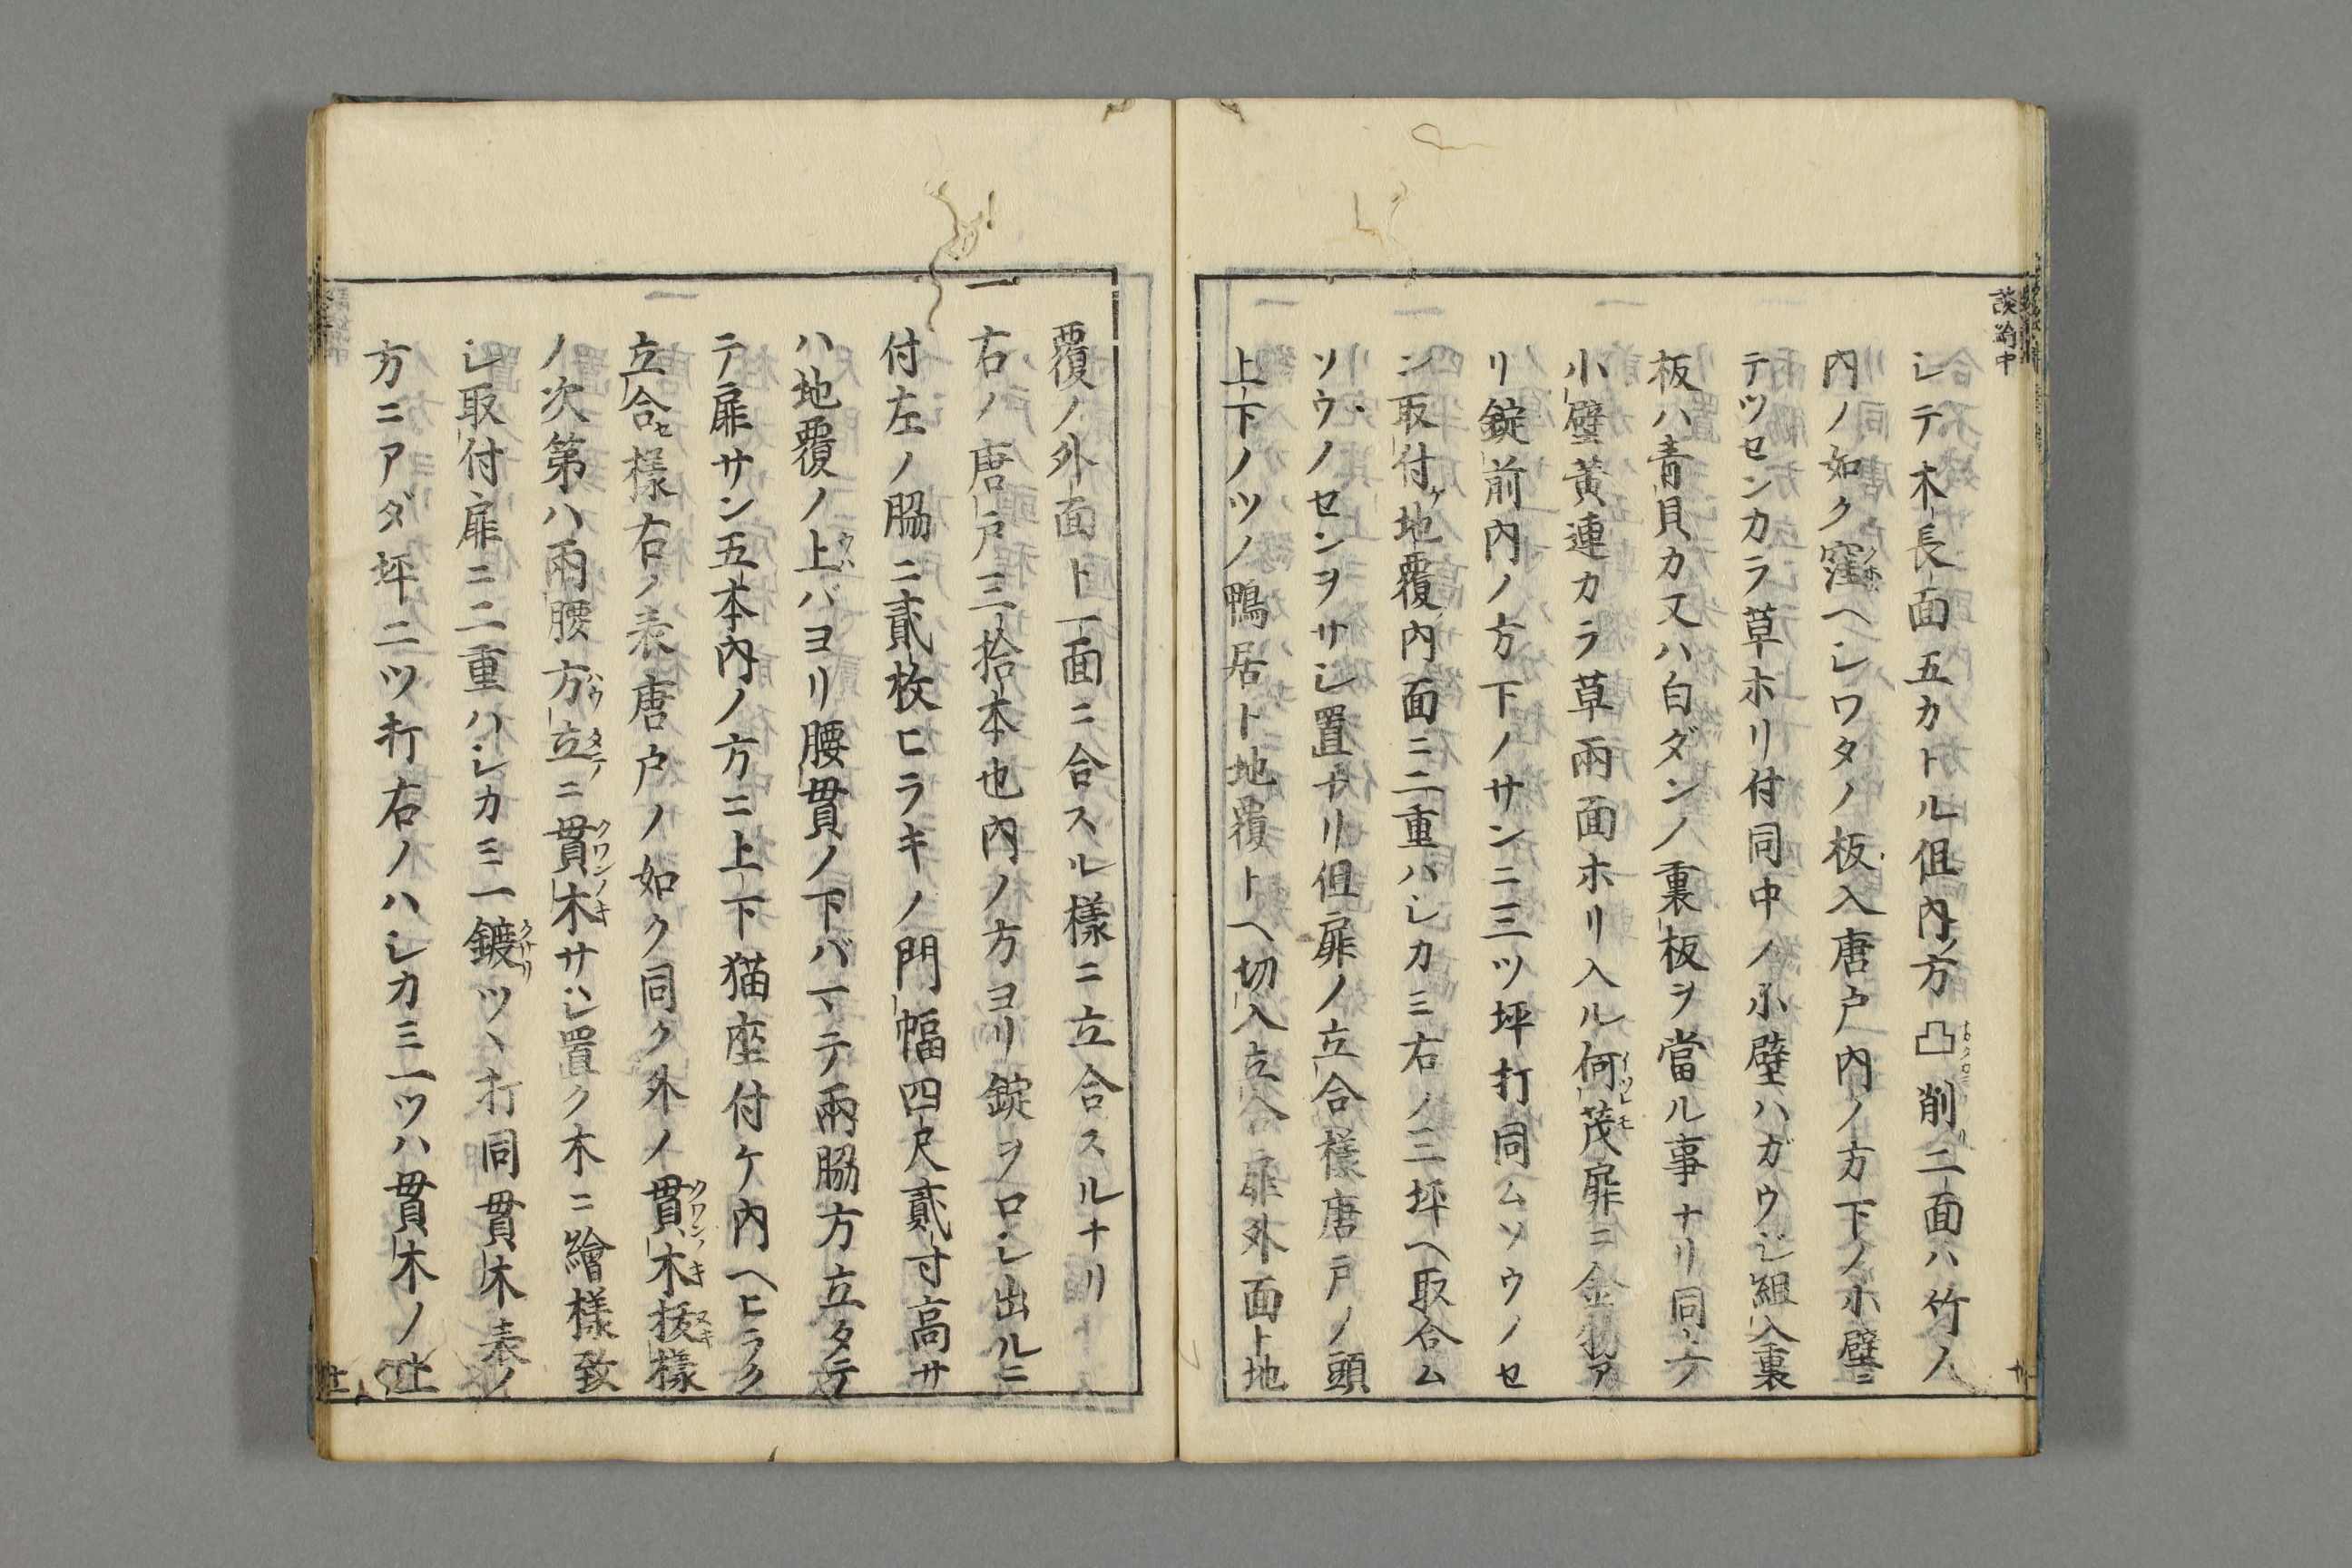 談嶺中
シテ木長面五カトル但内ノ方凸削リ二面ハ竹ノ
内ノ如ク窪ヘシワタノ板入唐戸内ノ方下ノ小壁ニ
テツセンカラ草ホリ付同中ノ小壁ハガウシ組入裏
板ハ青貝カ又ハ白ダンノ裏板ヲ當ル事ナリ同方
小壁黄連カラ草兩面ホリ入ル何茂扉ニ金物ア
リ錠前内ノ方下ノサンニ三ツ坪打同ムソウノセ
ン取付ケ地覆内面ニ二重ハシカミ右ノ三坪ヘ取合ム
ソウノセンヲサシ置ナリ但扉ノ立合樣唐戸ノ頭
上下ノツノ鴨居ト地覆トヘ切入立合扉外面ト地
覆ノ外面ト一面ニ合スル樣ニ立合スルナリ
一右ノ唐戸三拾本也内ノ方ヨリ錠ヲロシ出ルニ
付左ノ脇ニ貳枚ヒラキノ門幅四尺貳寸高サ
ハ地覆ノ上バヨリ腰貫ノ下バマテ兩脇方立タテ
テ扉サン五本内ノ方ニ上下猫座付ケ内ヘヒラク
立合セ樣右ノ表唐戸ノ如ク同ク外ノ貫木拔樣
ノ次第ハ兩腰方立ニ貫木サシ置ク木ニ繪樣致
シ取付扉ニ二重ハシカミ一鍍ツヽ打同貫木表ノ
方ニアダ坪二ツ打右ノハシカミ一ツハ貫木ノ上